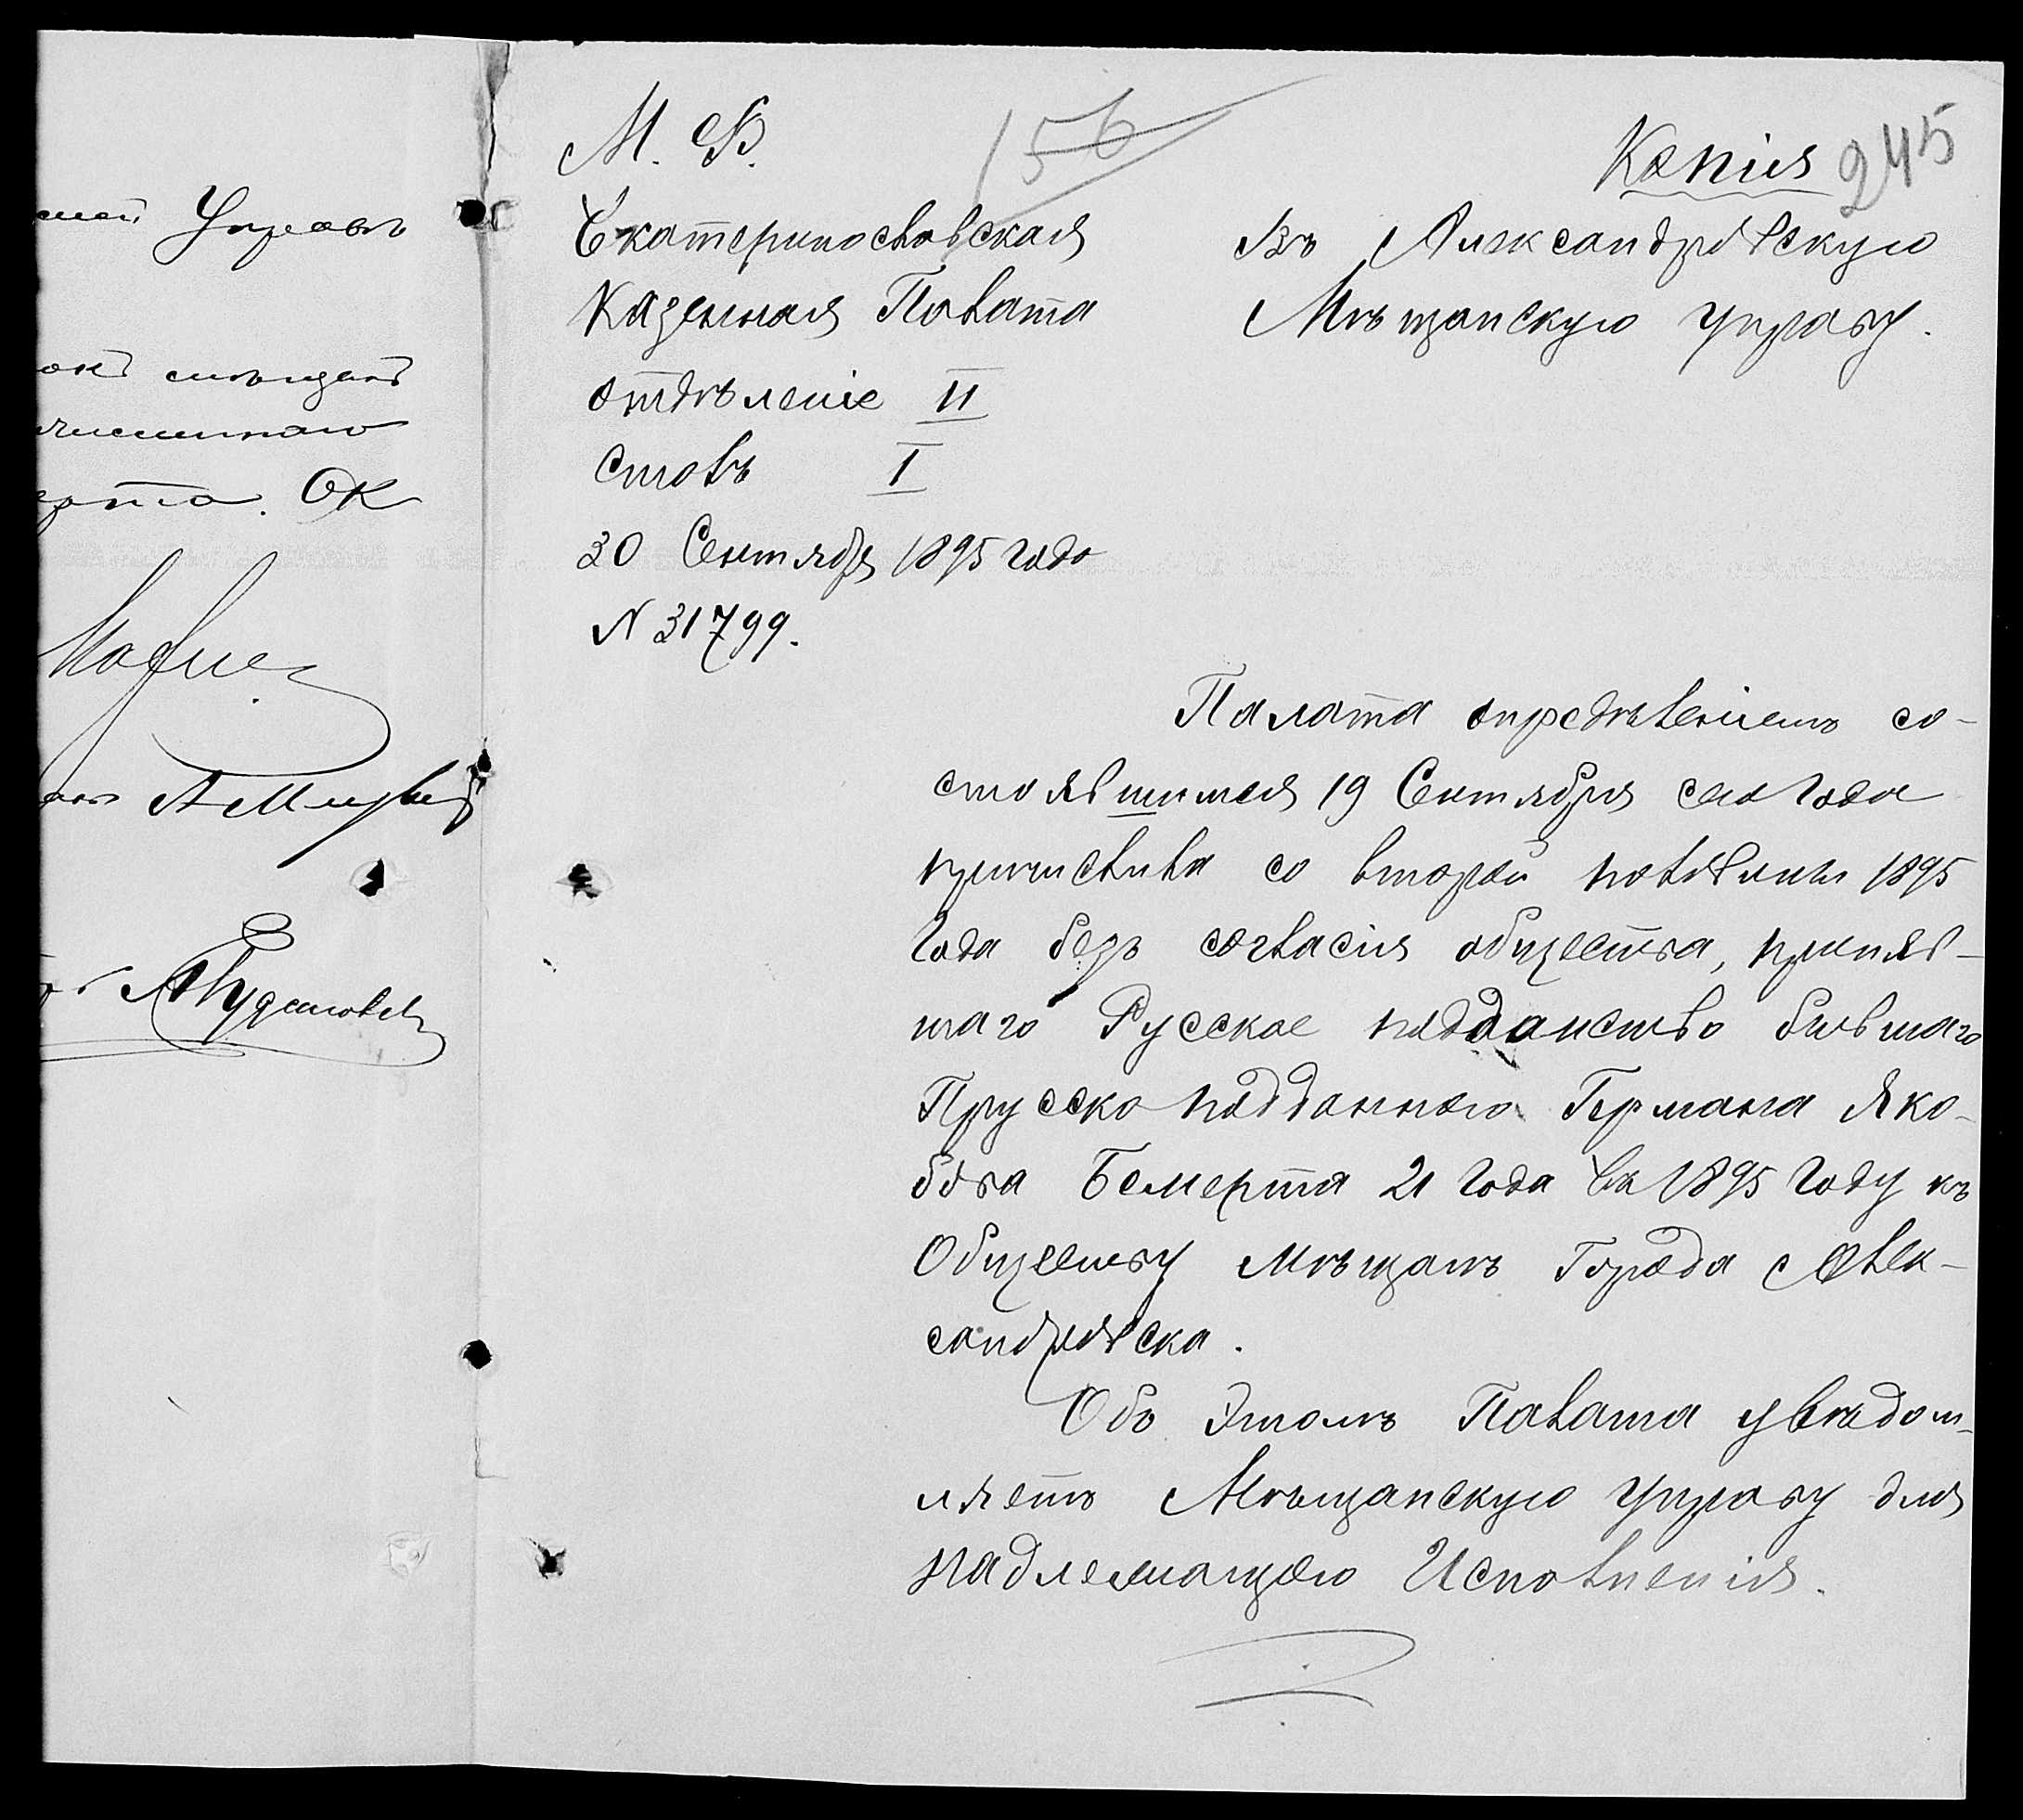 сткой Управы
М. Ф.
156
Копія 245
Екатеринославская
Казенная Палата
отдѣленіе II
столъ I
30 Сентября 1895 года
N 31799.
Въ Александровскую
Мѣщанскую управу.
Палата опредѣленіемъ со-
стоявшимся 19 Сентября сего года
причислила со второй половины 1895
года безъ согласія общества, приняв-
шаго Русское подданство бывшаго
Прусско подданного Германа Яко-
бова Бемерта 21 года въ 1895 году къ
Обществу мѣщанъ Города Алек-
сандровска.
Объ этомъ Палата увѣдом-
ляетъ Мѣщанскую управу для
надлежащаго Исполненія.